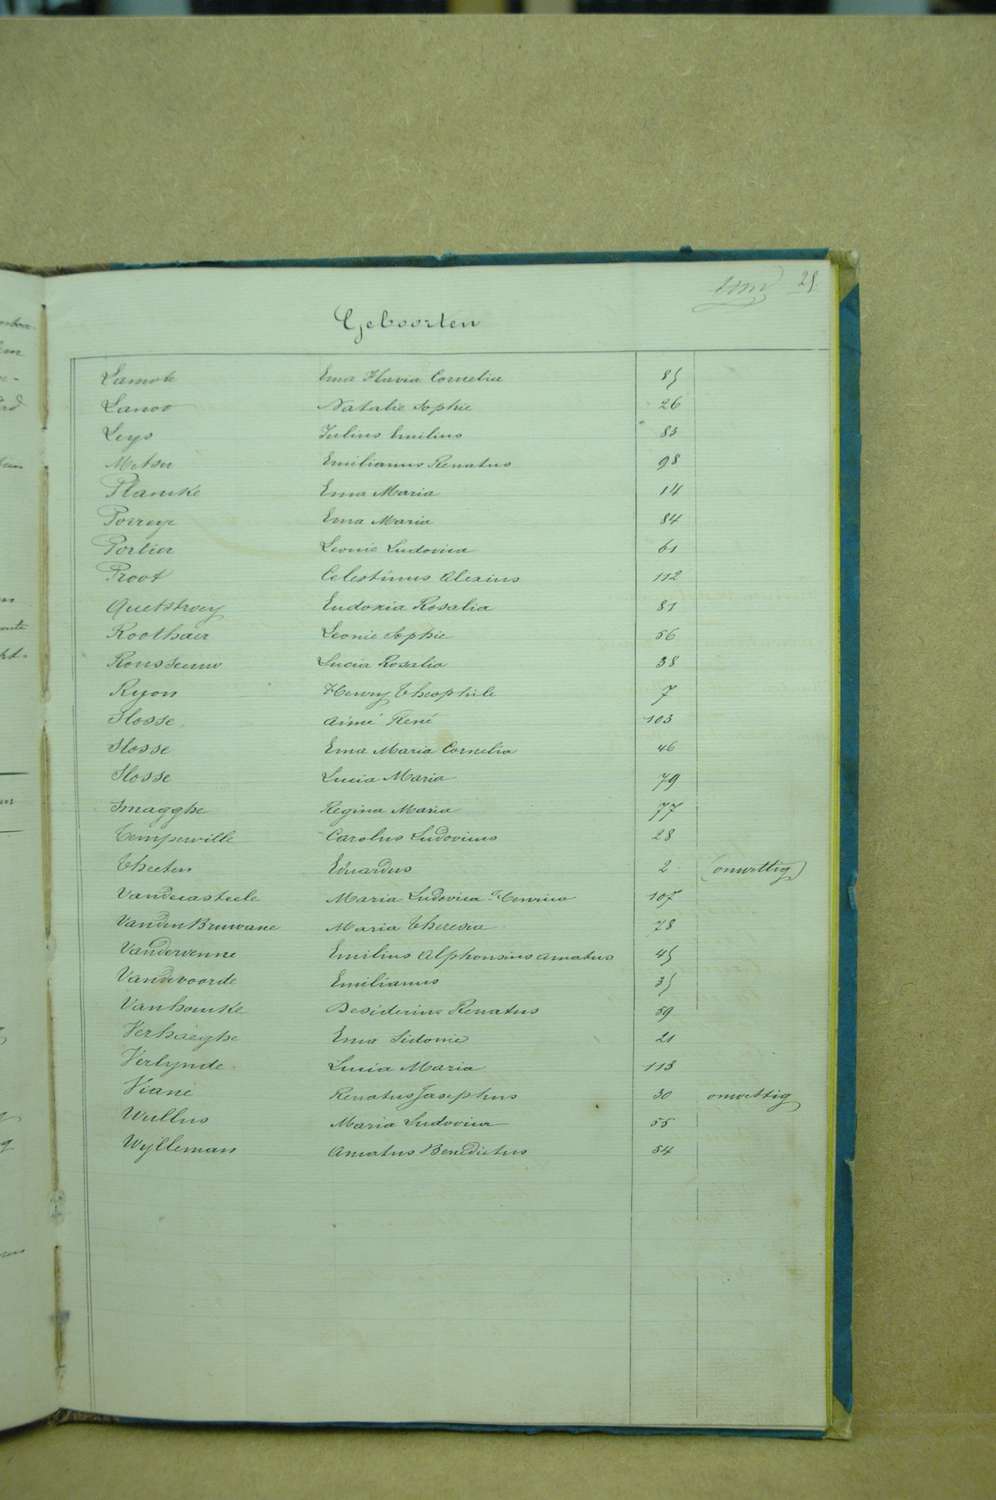 25
Geboorten
Lamote Ema Flavia Cornelia 85
Lanoo Natalie Sophie 26
Leys Julius Emilius 83
Metsu Emilianus Renatus 98
Plancke Ema Maria 14
Porreye Ema Maria 84
Portier Leonie Ludovica 61
Proot Celestinus Alexius 112
Quetstroey Eudoxia Rosalia 81
Roothaer Leonie Sophie 56
Rousseeuw Lucia Rosalia 38
Ryon Henry Theophile 7
Slosse Aimé René 103
Slosse Ema Maria Cornelia 46
Slosse Lucia Maria 79
Smagghe Regina Maria 77
Temperville Carolus Ludovicus 28
Theeten Eduardus 2 (onwettig)
Vandecasteele Maria Ludovica Henrica 107
Vanden Bruwane Maria Theresia 78
Vandervenne Emilius Alphonsius Amatus 45
Vandevoorde Emilianus 35
Vanhoucke Desiderius Renatus 59
Verhaeghe Ema Sidonie 21
Verlynde Lucia Maria 113
Viane Renatus Josephus 30 onwettig
Wullus Maria Ludovica 55
Wylleman Amatus Benedictus 54